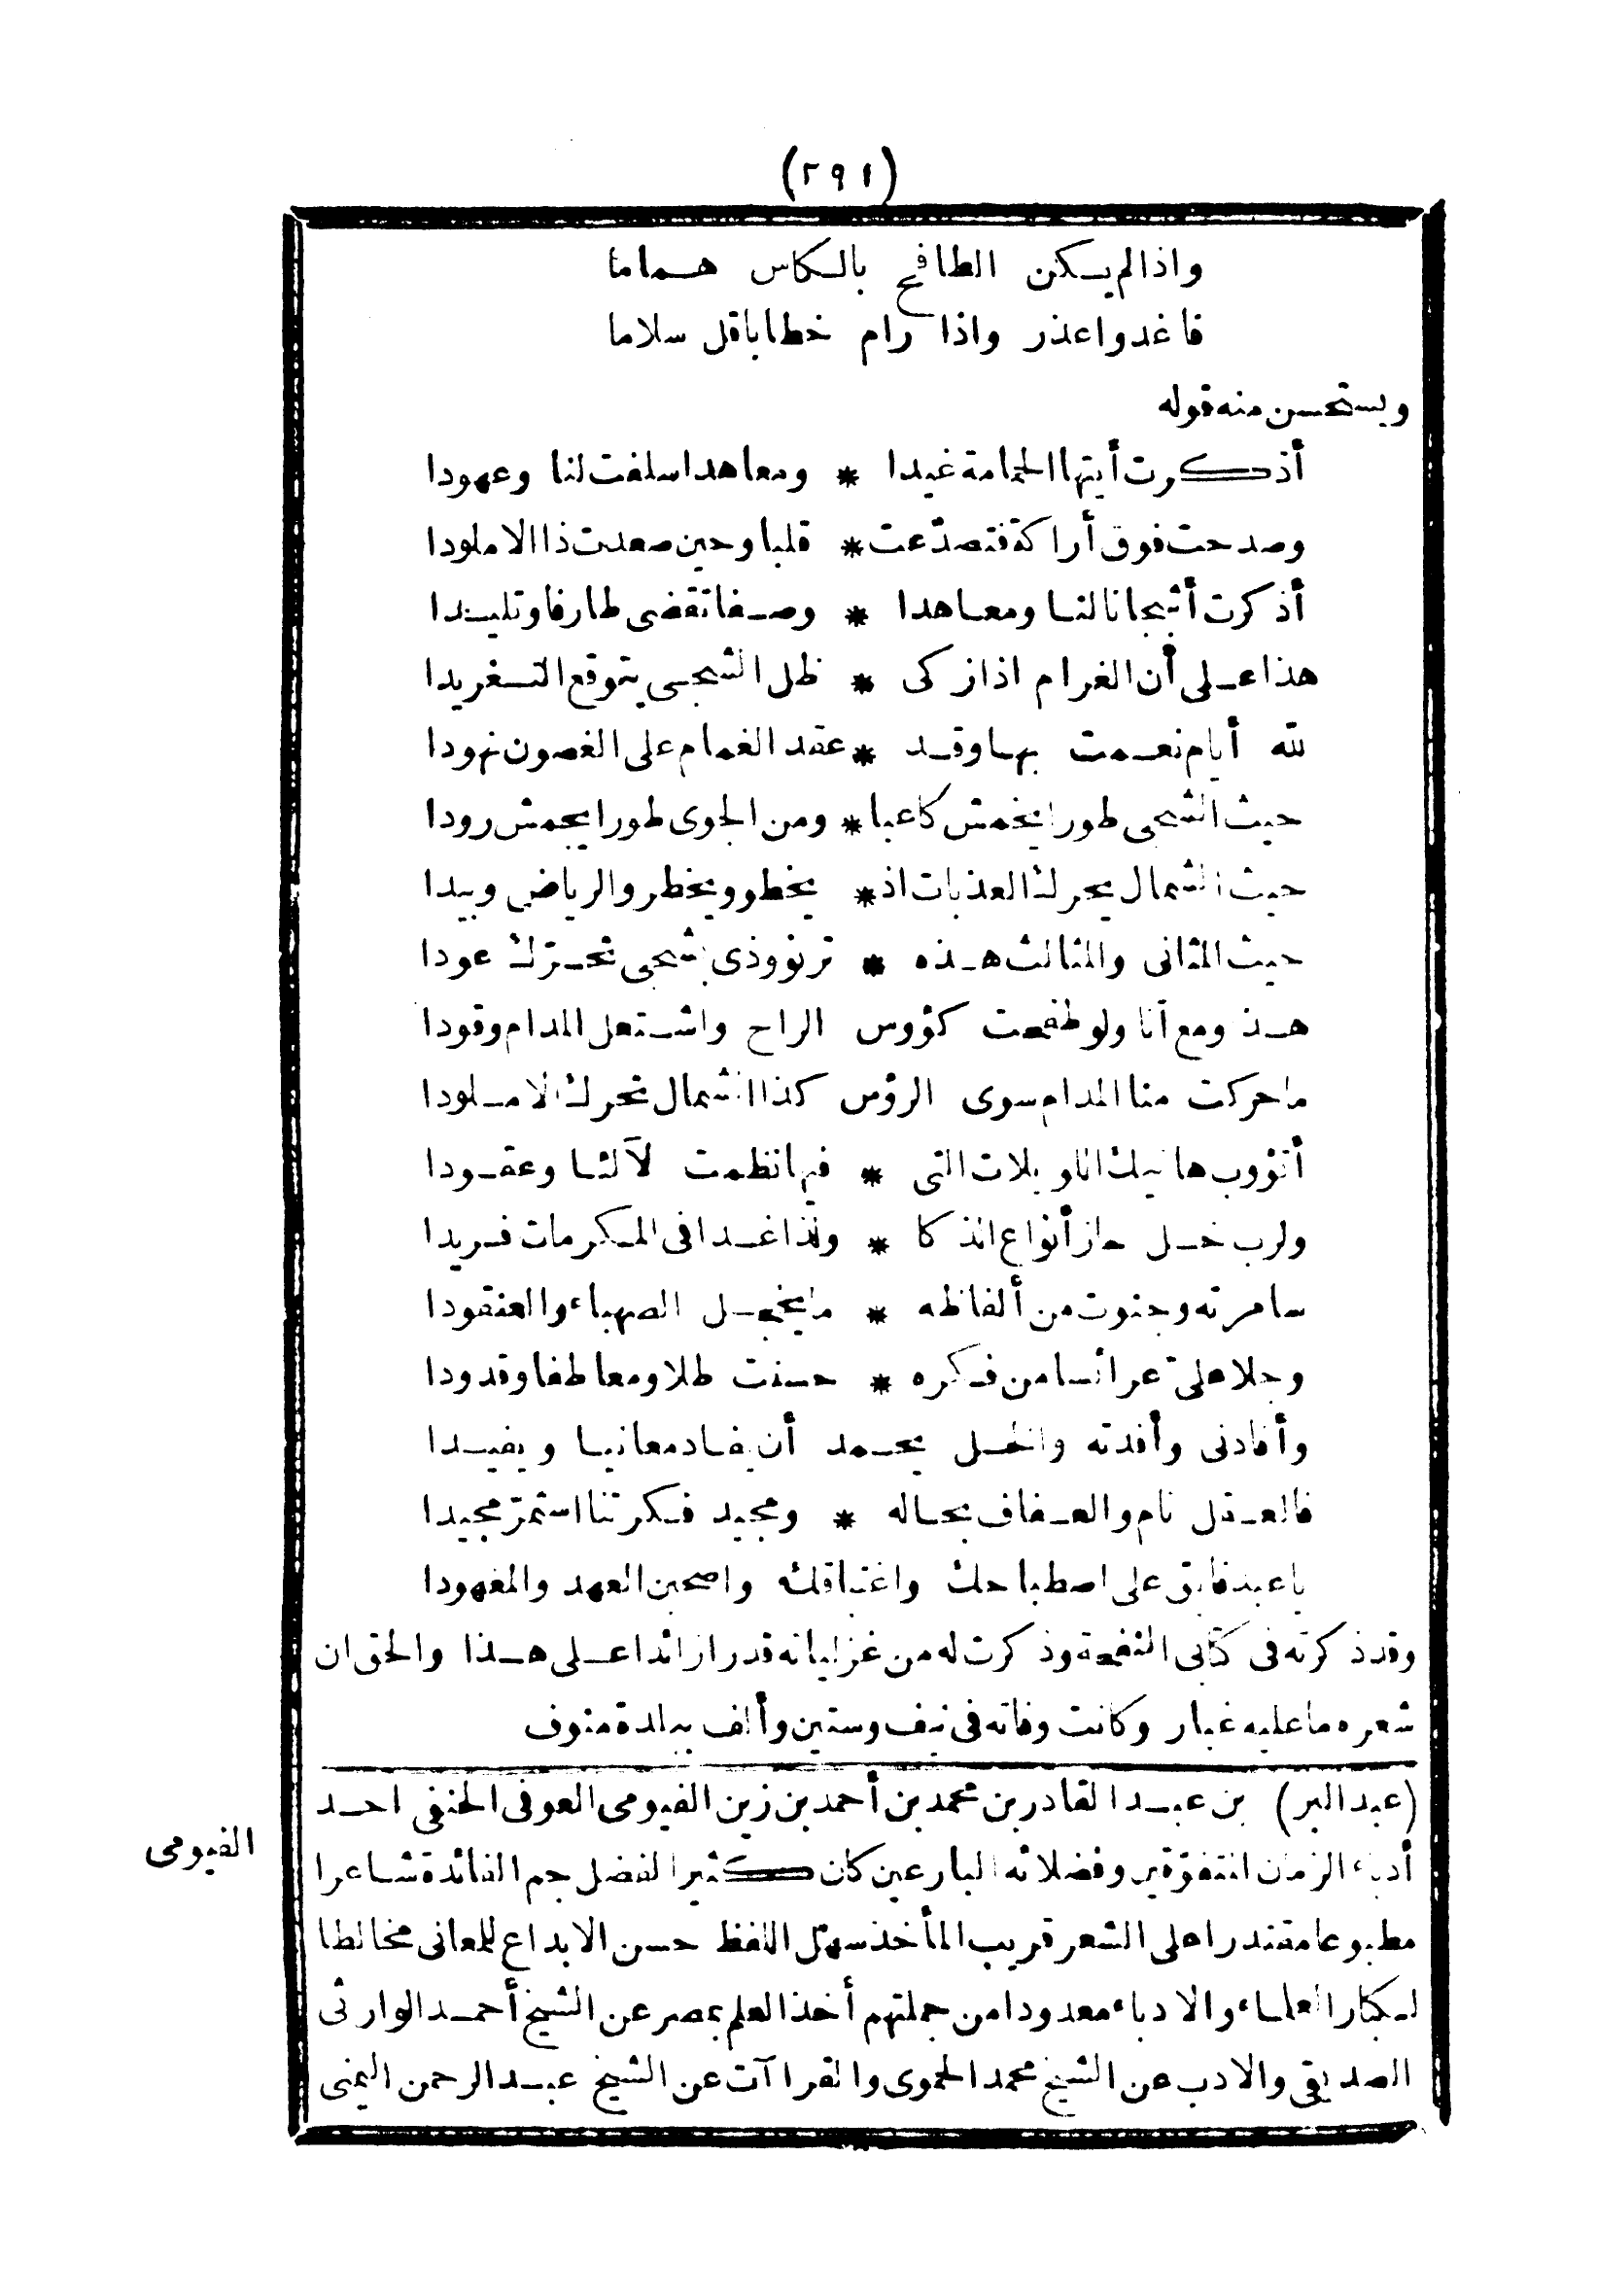 (٢٩١)
واذا لم يكن الطافح بالكاس هماما
فاغد واعذر واذا رام خطابا قل سلاما
ويستحسن منه قوله
أذكرت أيتها الحمامة غيدا * ومعاهدا سلفت لنا وعهودا
وصدحت فوق أراكة فتصدّعت * قلبا وحين صعدت ذا الاملودا
أذكرت أشجانا لنا ومعاهدا * وصفا تقضى طارفا وتليدا
هذا على أن الغرام اذا زكى * ظل الشجى يتوقع التغريدا
لله أيام نعمت بها وقد * عقد الغمام على الغصون نهودا
حيث الشجى طورا يخمش كاعبا * ومن الجوى طورا يجمش رودا
حيث الشمال يحرك العذبات اذ * يخطو ويخطر والرياض وبيدا
حيث المثانى والمثالث هذه * ترنو وذى بشجى تحرّك عودا
هذ ومع آنا ولو طفحت كؤوس الراح واشتعل المدام وقودا
ما حركت منا المدام سوى الرؤس كذا الشمال تحرك الاملودا
أتؤوب هاتيك اللويلات التى * فيها نظمت لآلئا وعقودا
ولرب خل حاز أنواع الذكا * ولذا غدا فى المكرمات فريدا
سامرته وجنوت من ألفاظه * ما يخجل الصهباء والعنقودا
وجلا على ّ عرائسا من فكره * حسنت طلا ومعاطفا وقدودا
وأفادنى وأفدته والخل يحمد أن يفاد معانيا ويفيدا
فالعذل نام والعفاف بحاله * ومجيد فكرتنا استمرّ مجيدا
يا عبد فابق على اصطباحك واغتباقك واصحبن العهد والمعهودا
وقد ذكرته فى كتابى النفحة وذكرت له من غزلياته قدرا زائدا على هذا والحق ان
شعره ما عليه غبار وكانت وفاته فى نيف وستين وألف ببلدة منوف
(عبد البر) بن عبد القادر بن محمد بن أحمد بن زين الفيومى العوفى الحنفى احد
الفيومى
أدباء الزمان المتفوّقين وفضلائه البارعين كان كثير الفضل جم الفائدة شاعرا
مطبوعا مقتدرا على الشعر قريب المأخذ سهل اللفظ حسن الابداع للمعانى مخالطا
لكبار العلماء والادباء معدودا من جملتهم أخذ العلم بمصر عن الشيخ أحمد الوارثى
الصديقى والادب عن الشيخ محمد الحموى والقراآت عن الشيخ عبد الرحمن اليمنى